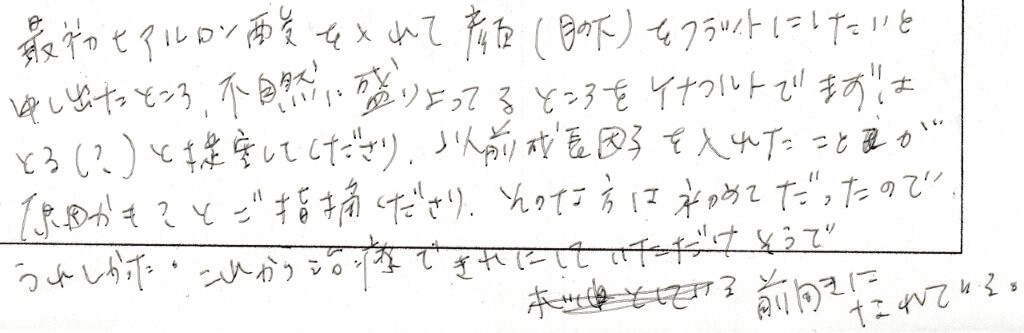 最初ヒアルロン酸を入れて顔(目の下)をフラットにしたいと
申し出たところ、不自然に盛りよってるところをイナフルトでまずは
とる(?)と提案してくださり、以前成長因子を入れたことが
原因かも?とご指摘くださり、そのな方は初めてだったので、
うれしかった。これから治療できれいにしていただけそうで
前向きになれている。